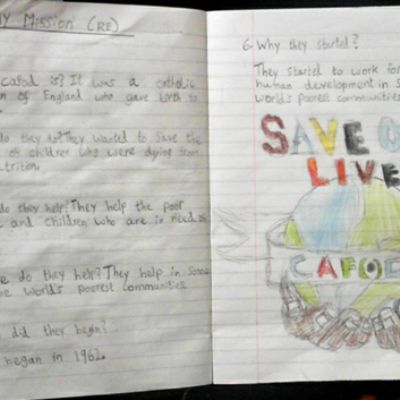 Mission (RE)
cafod is? It was a catholic
of England who gave birth to
do they do? They wanted to save the
of children who were dying from
do they help? They help the poor
and children who are in need
do they help? They help in some
world's poorest communities
did they begin?
began in 1962.
6. Why they started?
They started to work for
human development in
world's poorest communities
SAVE
LIVE
CAFOD